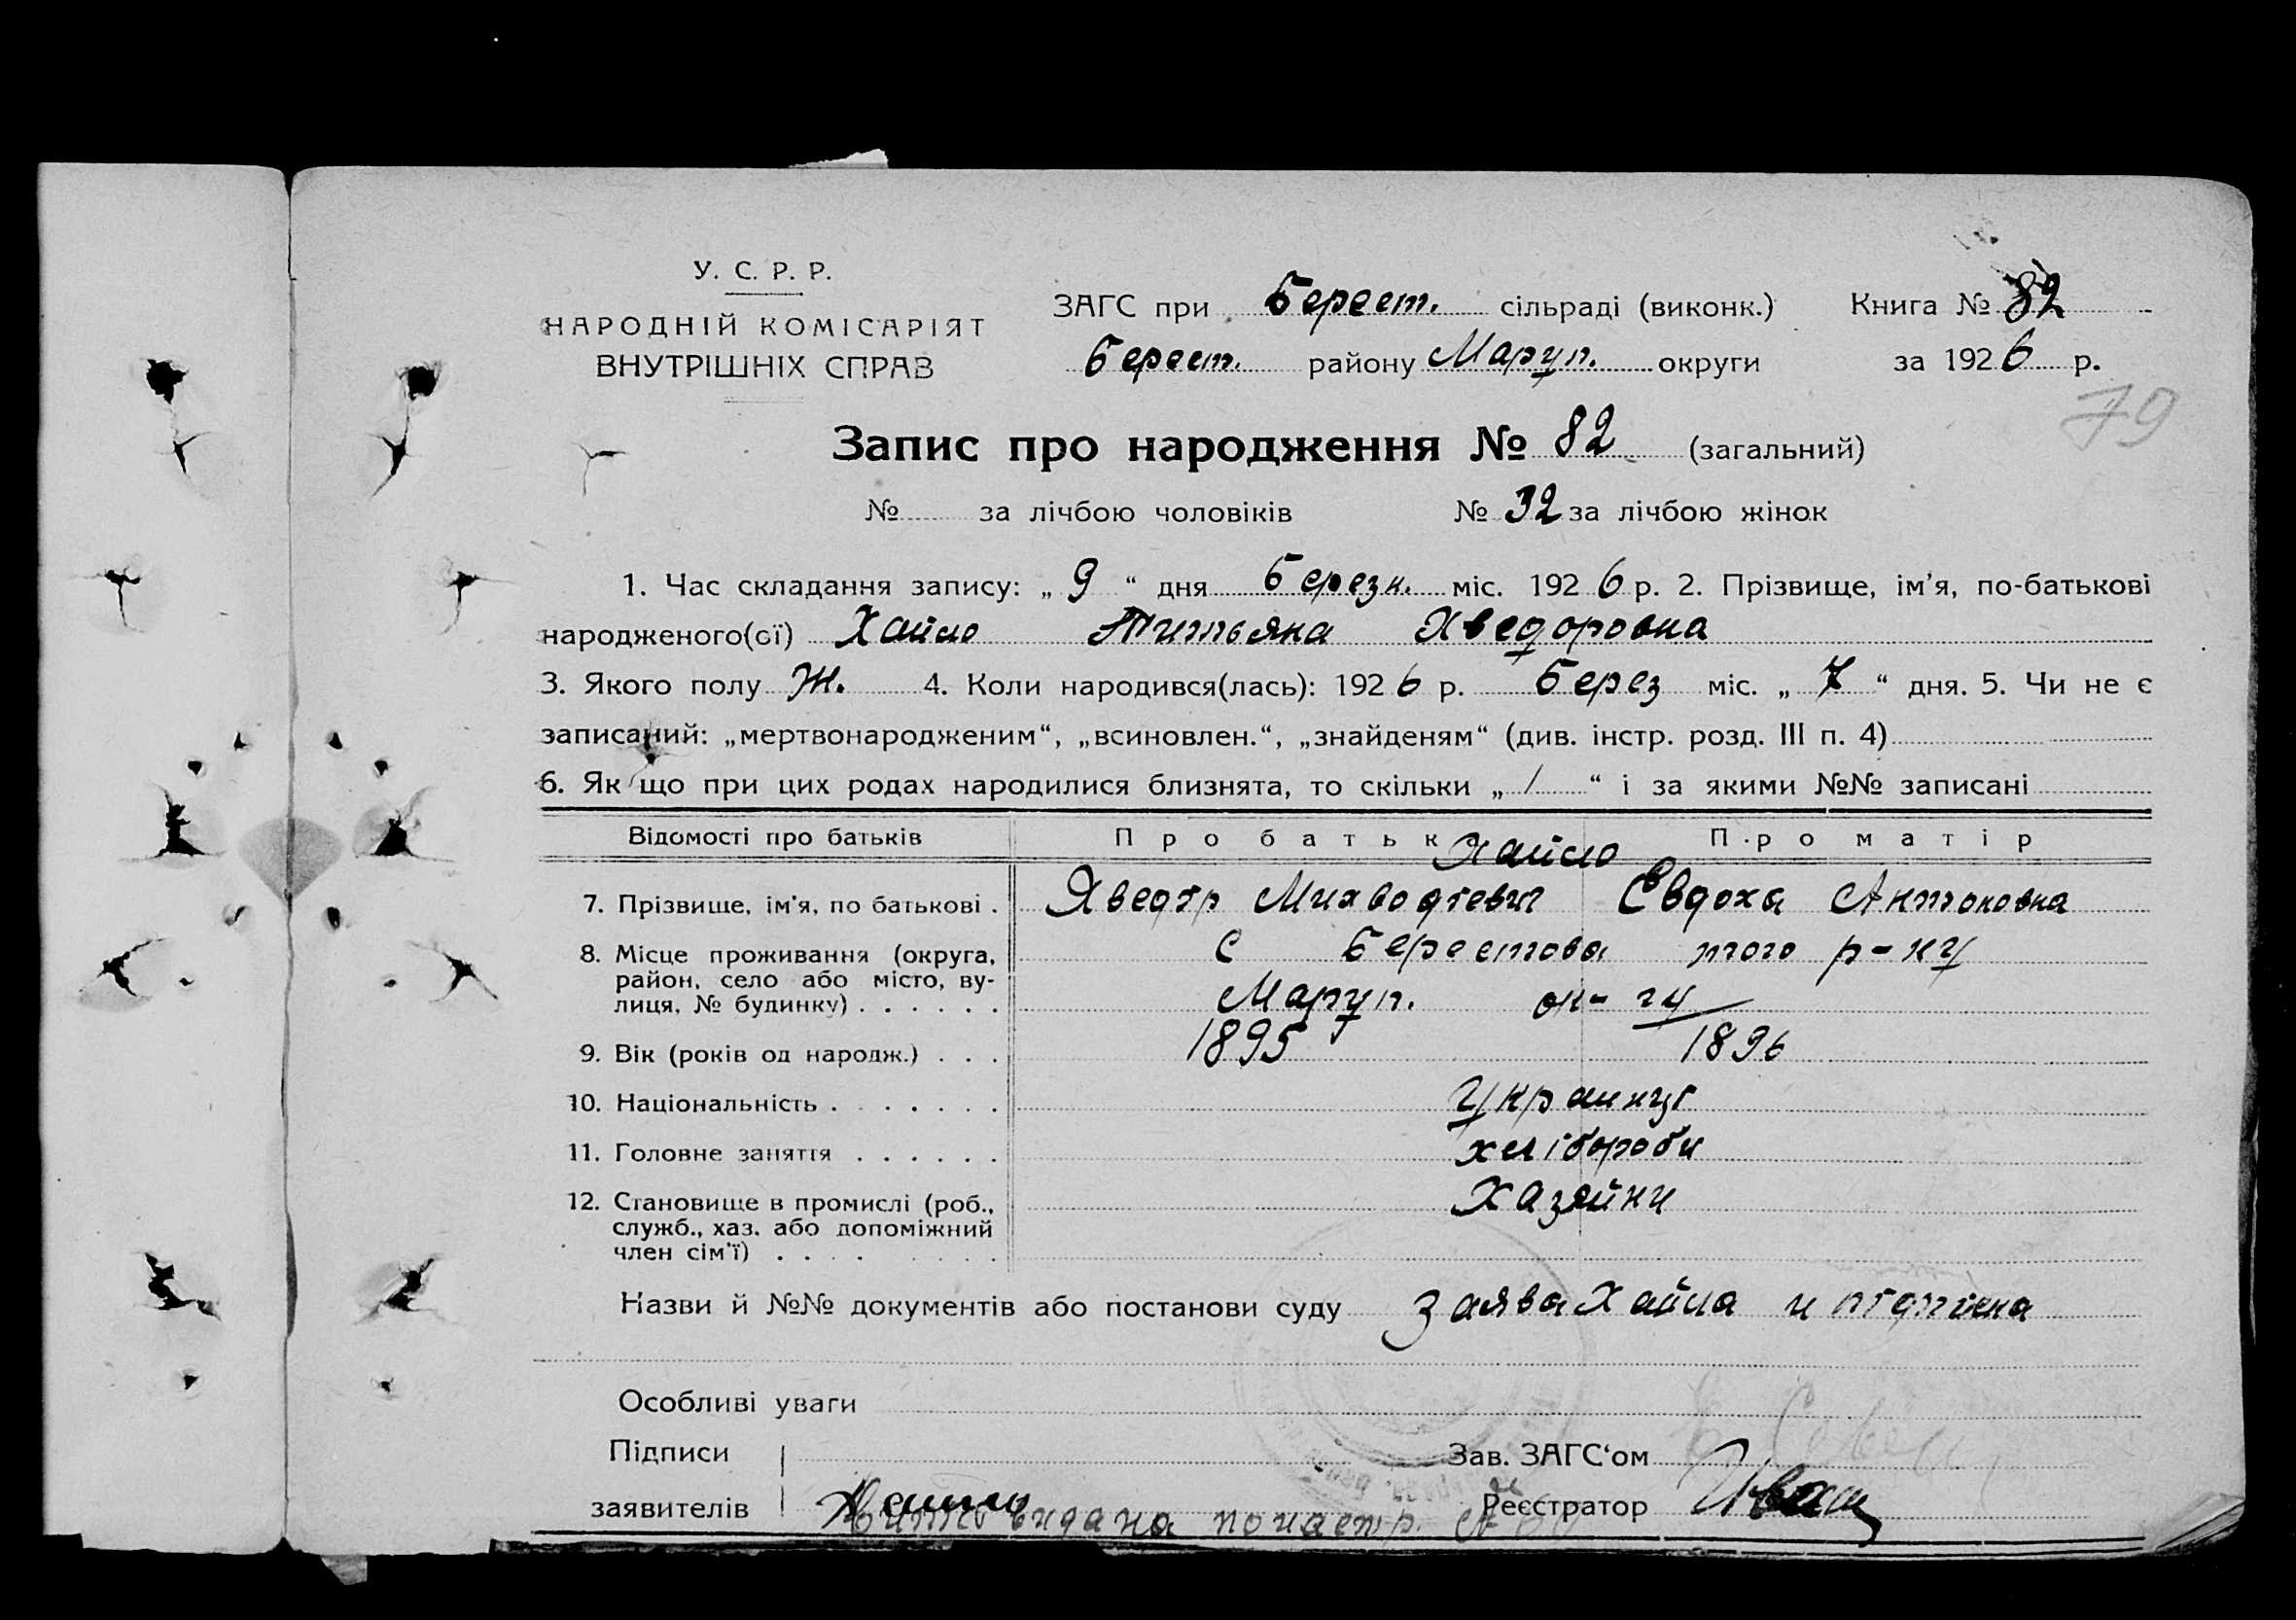 У. С. Р. Р.
НАРОДНІЙ КОМІСАРІЯТ
ВНУТРІШНІХ СПРАВ
ЗАГС при Берест. сільраді (виконк.) Книга № 82
Берест. району Маріуп. округи за 1926 р.
79
Запис про народження № 82 (загальний)
№ за лічбою чоловіків № 32 за лічбою жінок
1. Час складання запису: „ 9 “ дня березн. міс. 1926 р. 2. Прізвище, ім'я, по-батькові
народженого(ої) Хайло Титьяна Хведоровна
3. Якого полу Ж. 4. Коли народився(лась): 1926 р. Берез міс. „ 7 “ дня. 5. Чи не є
записаний: „мертвонародженим“, „всиновлен.“, „знайденям“ (див. інстр. розд. III п. 4)
6. Як що при цих родах народилися близнята, то скільки „ / “ і за якими №№ записані
Відомості про батьків Про батька Про матір
Хайло
7. Прізвище, ім'я, по батькові . Хведір Евдоха Антоновна
8. Місце проживання (округа, С Берестова того р-ну
район, село або місто, ву-
лиця, № будинку) . . . . . . Маріуп. ок-ги
9. Вік (років од народж.) . . . 1895 1896
10. Національність . . . . . . . Українці
11. Головне заняття . . . . . . хлібороби
12. Становище в промислі (роб., Хазяйни
служб., хаз. або допоміжний
член сім'ї) . . . . . . .
Назви й №№ документів або постанови суду Заява Хайла и
Особливі уваги
Підписи Зав. ЗАГС‘ом
заявителів Хайло Реєстратор Иващ
видана